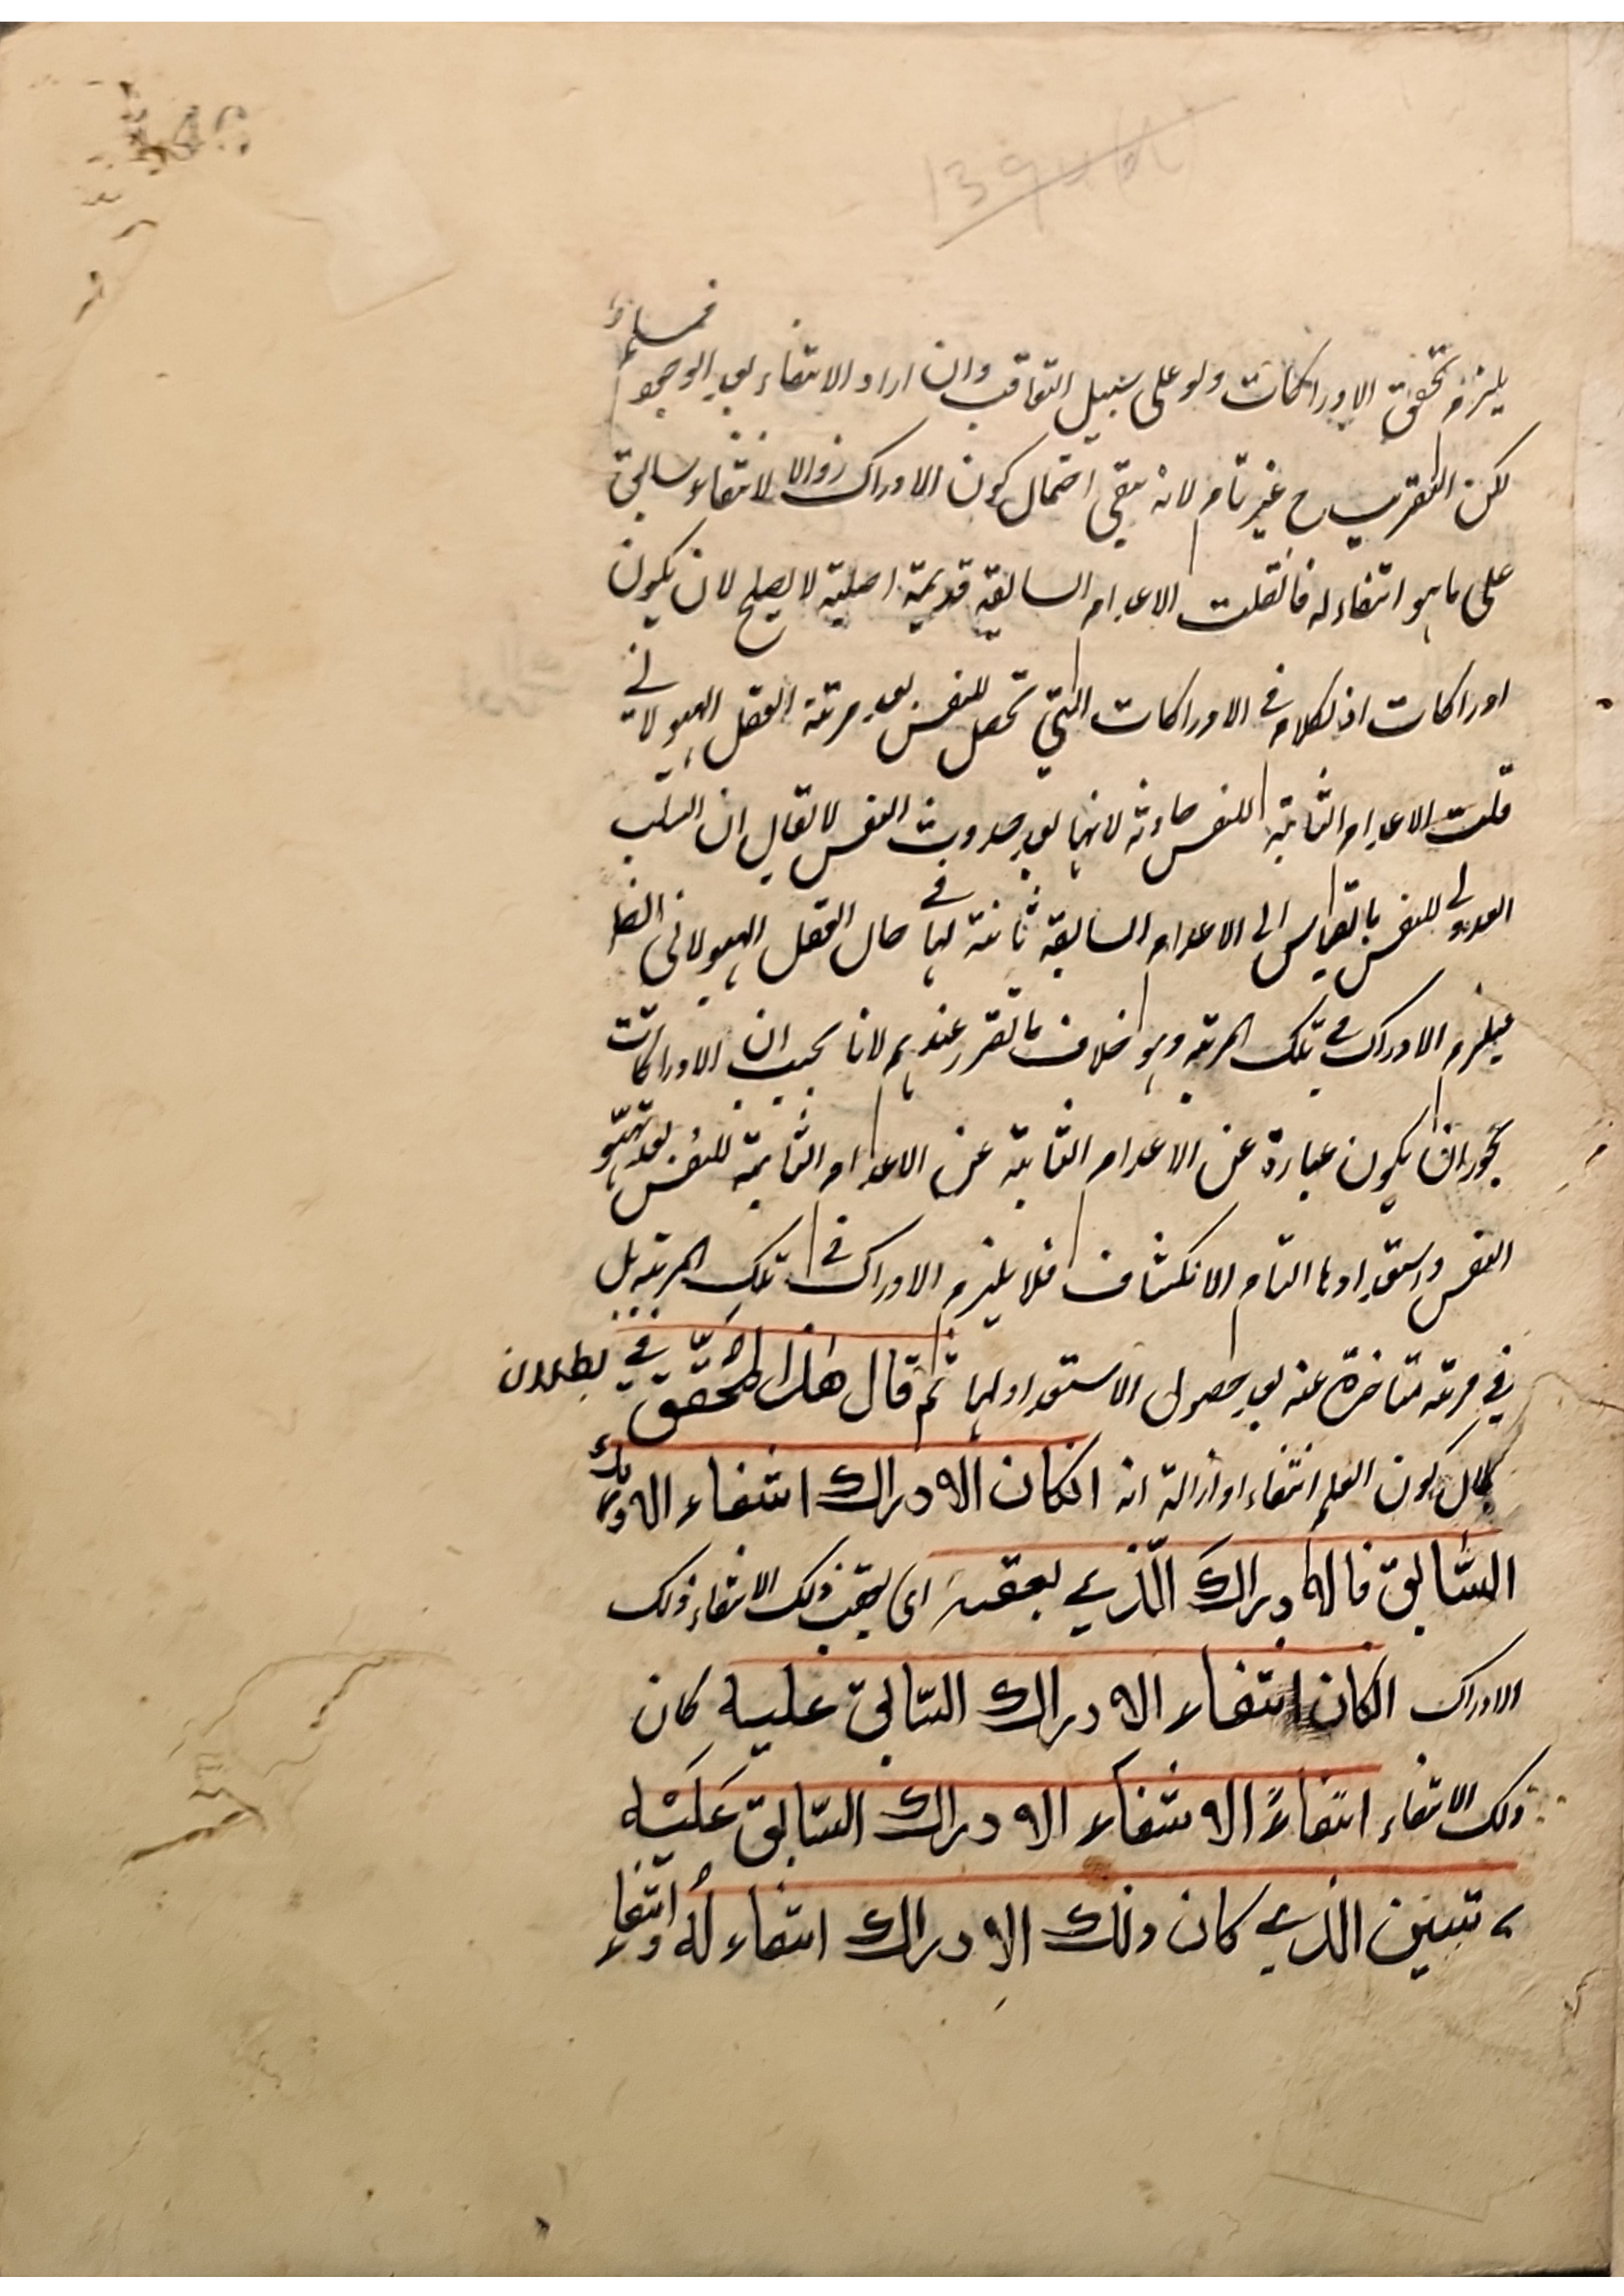 يلزم تحقق الادراكات ولو على سبيل التعاقب وان اراد الانتفاء بعد الوجود فمسلم
لكن التقريب ح غير تام لانه يبقى احتمال كون الادراك زوالا لانتفاء سابق
على ما هو انتفاء له فان قلت الاعدام السابقة قديمة اصلية لا يصلح لان يكون
ادراكات اذ الكلام في الادراكات التي تحصل للنفس بعد مرتبة العقل الهيولاني
قلت الاعدام الثابتة للنفس حادثة لانها بعد حدوث النفس لا يقال ان السلب
العدولي للنفس بالقياس الى الاعدام السابقة ثابتة لها في حال العقل الهيولاني
فيلزم الادراك في تلك المرتبة وهو خلاف ما تقرر عندهم لانا نجيب ان الادراكات
يجوز ان يكون عبارة عن الاعدام الثابتة عن الاعدام الثابتة للنفس بعد تهيؤ
النفس واستعدادها التام الانكشاف فلا يلزم الادراك في تلك المرتبة بل
في مرتبة متاخرة عنه بعد حصول الاستعداد لها ثم قال هذا المحقق في بطلان
كون العلم انتفاء او ازالة انه انكان الادراك انتفاء الادراك
السابق فالادراك الذي يعقبه اى يعقب ذلك الانتفاء ذلك
الادراك انكان انتفاء الادراك السابق عليه كان
ذلك الانتفاء انتفاءً الانتفاء الادراك السابق عليه
تبين الذي كان ذلك الادراك انتفاء له وانتفاء